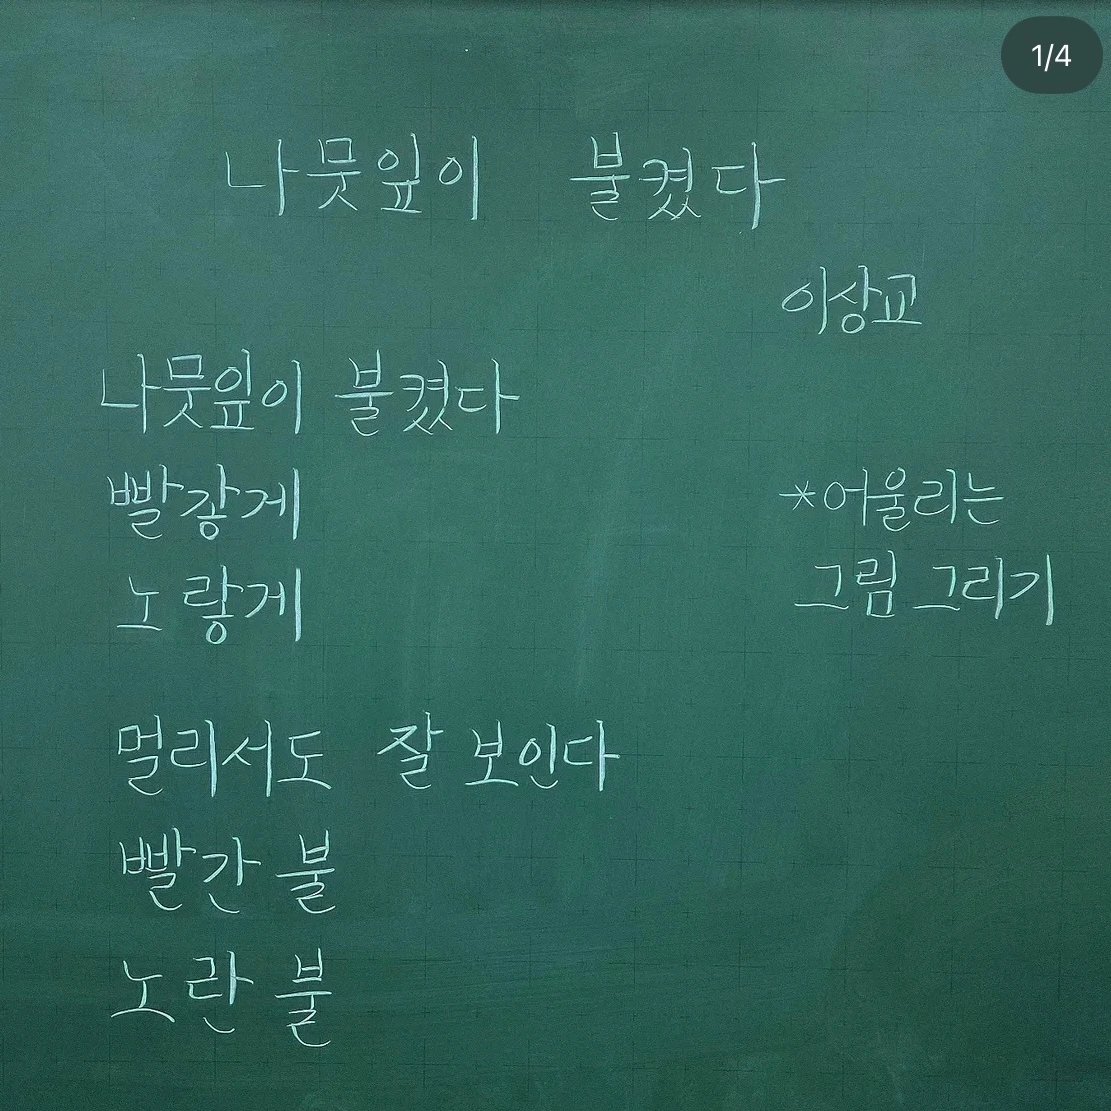 1/4
나뭇잎이 불켰다
이상교
나뭇잎이 불켰다
빨갛게
노랗게
멀리서도 잘 보인다
빨간 불
노란 불
*어울리는
그림 그리기